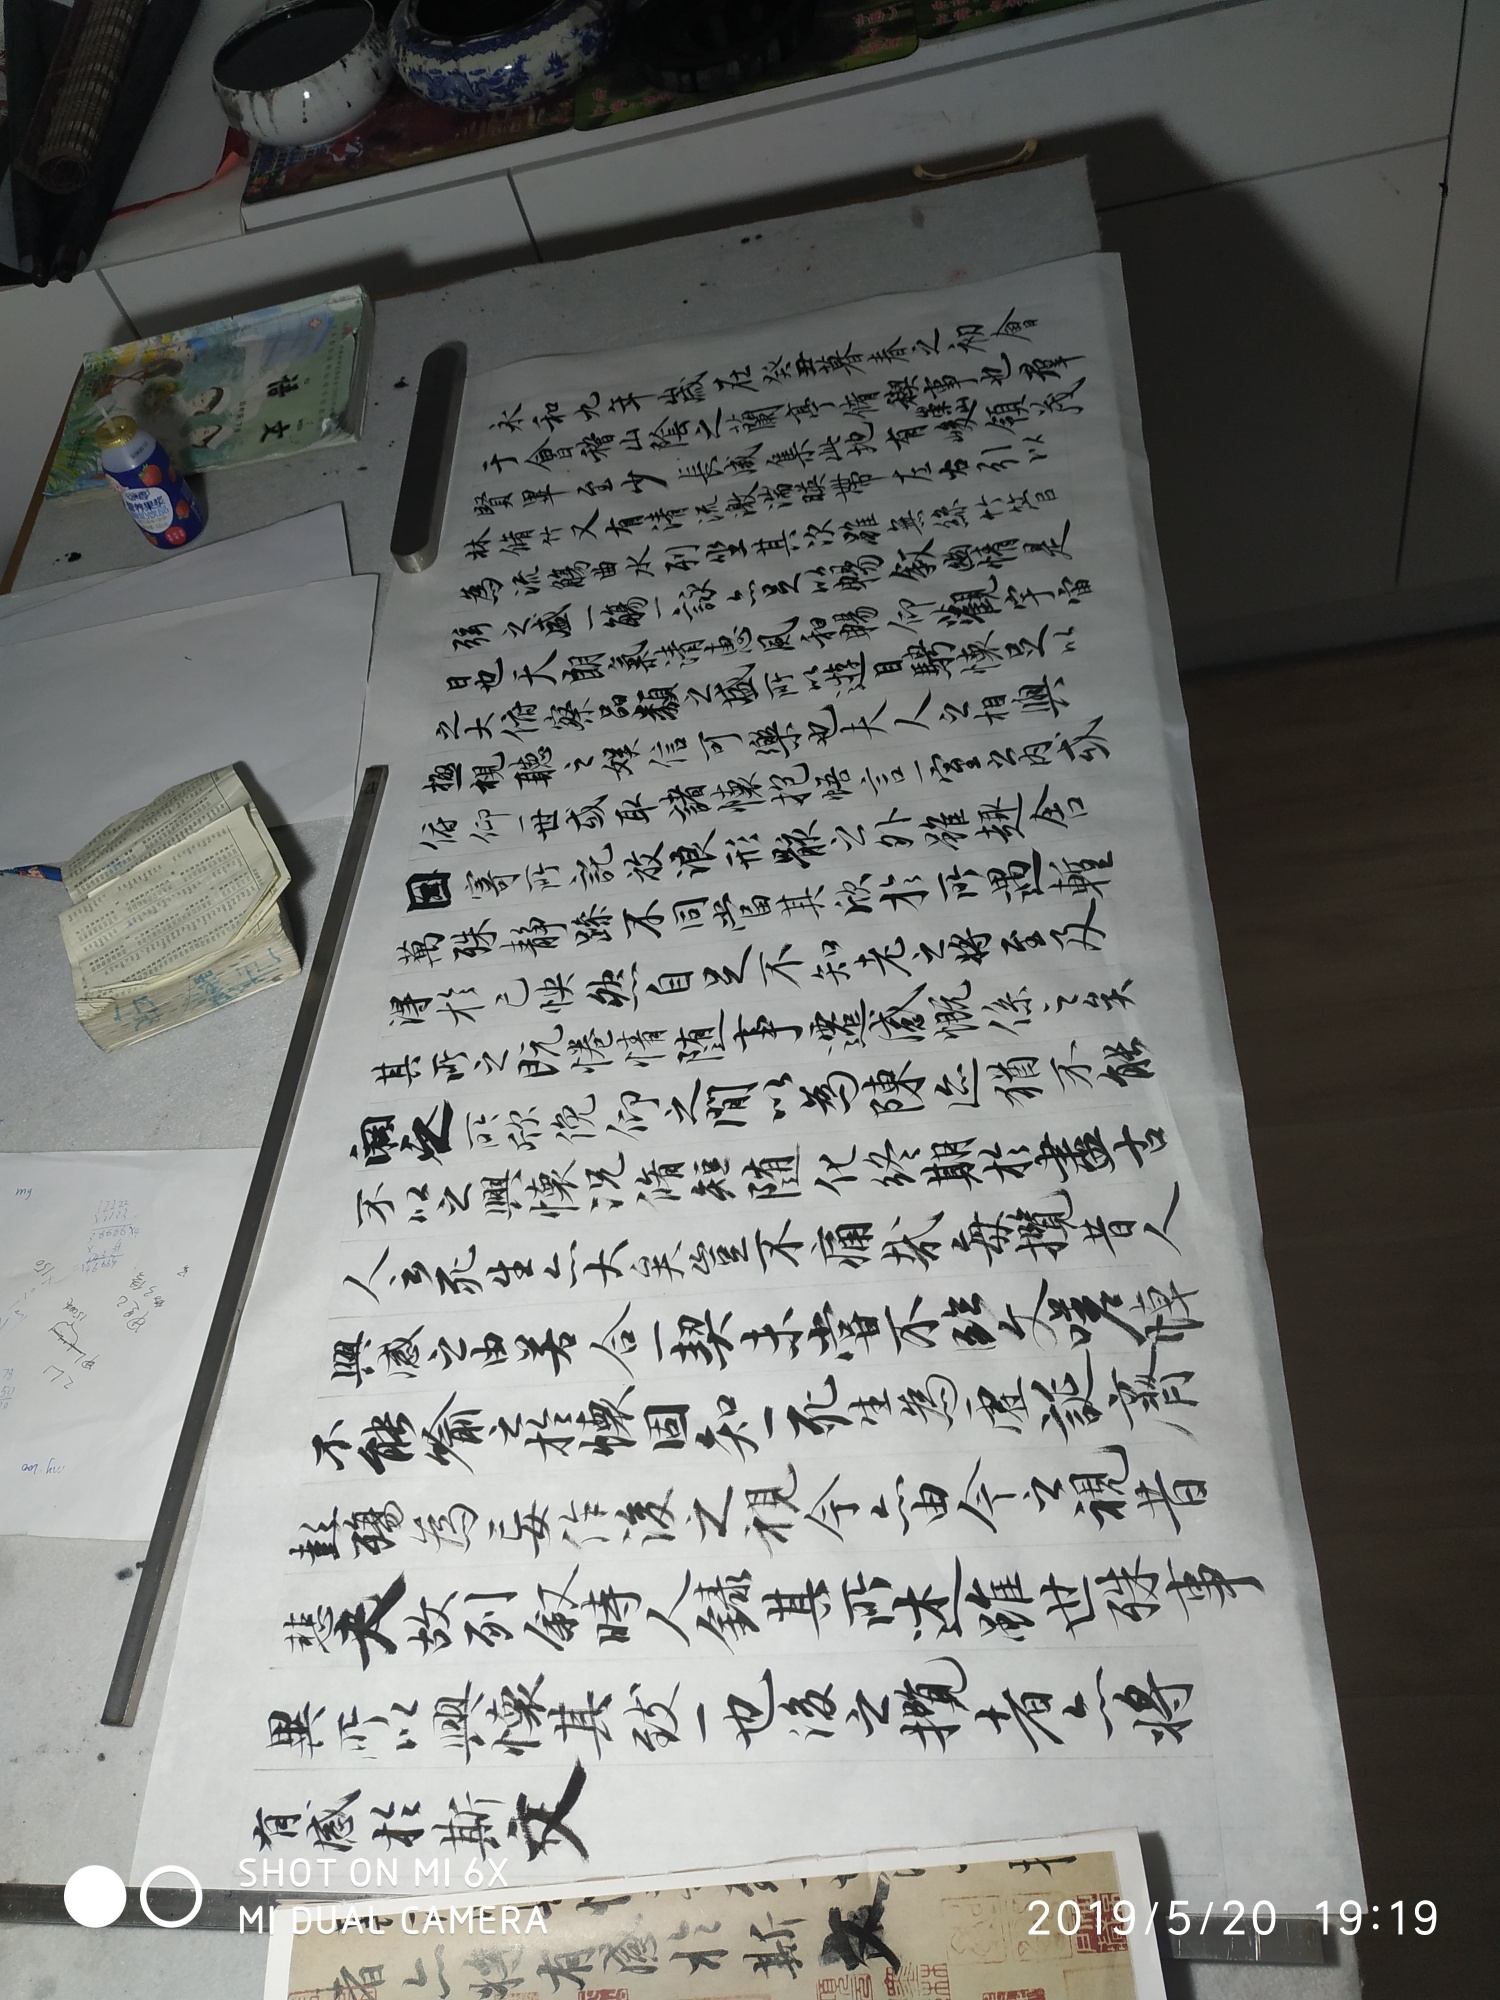 永和九年歲在癸丑暮春之初會
于會稽山陰之蘭亭脩禊事也羣
賢畢至少長咸集此地有崇山峻領茂
林脩竹又有清流激湍暎帶左右引以
為流觴曲水列坐其次雖無絲竹管
弦之盛一觴一詠亦足以暢敘幽情是
日也天朗氣清惠風和暢仰觀宇宙
之大俯察品類之盛所以遊目騁懷足以
極視聽之娛信可樂也夫人之相與
俯仰一世或取諸懷抱悟言一室之內或
因寄所託放浪形骸之外雖趣舍
萬殊靜躁不同當其欣於所遇暫
得於己快然自足不知老之將至及
其所之既惓情隨事遷感慨係之矣
向之所欣俛仰之閒以為陳迹猶不能
不以之興懷況脩短隨化終期於盡古
人云死生亦大矣豈不痛哉每攬昔人
興感之由若合一契未嘗不臨文嗟悼
不能喻之於懷固知一死生為虛誕齊
彭殤為妄作後之視今亦由今之視昔
悲夫故列敘時人錄其所述雖世殊事
異所以興懷其致一也後之攬者亦將
有感於斯文
者亦將有感於斯文
語文
SHOT ON MI 6X
MI DUAL CAMERA
2019/5/20 19:19